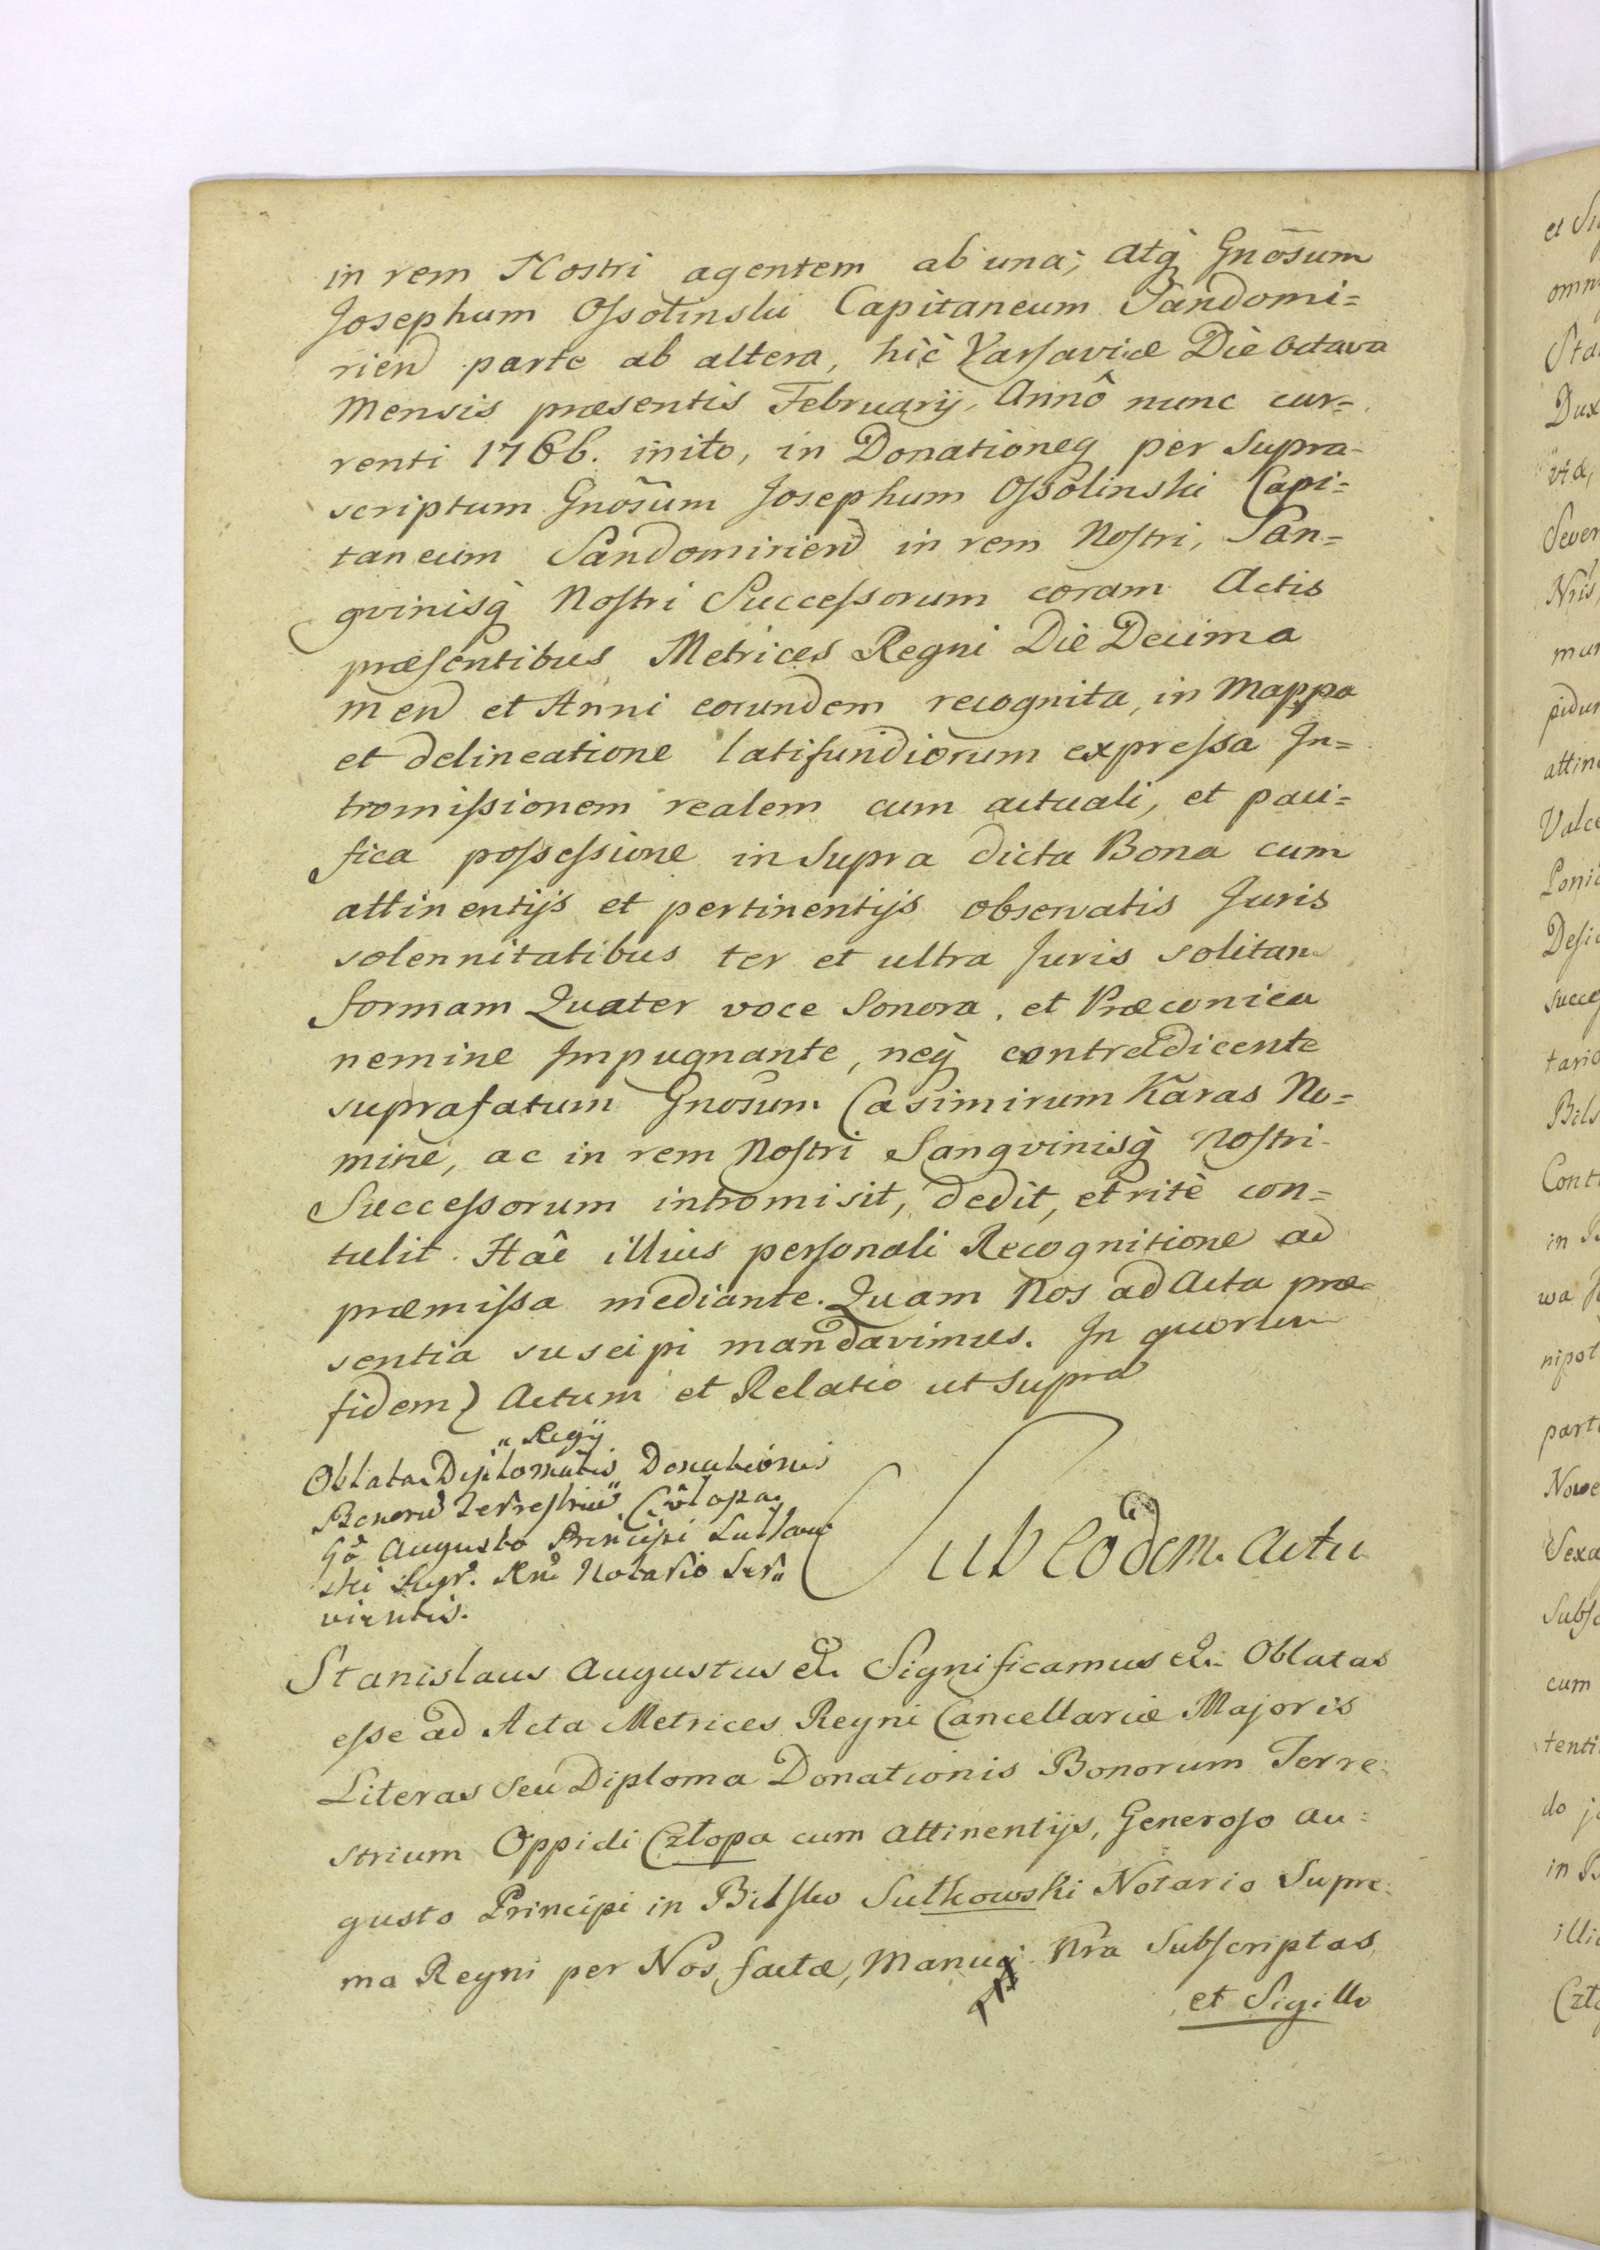 in rem Nostri agentem ab una, atq̀ Gnõsum
Josephum Ossolinski Capitaneum Sandomi=
rien parte ab altera, hic Varsaviæ Die octava
Mensis præsentis Februarij, Annô nunc cur=
renti 1766. inito, in Donationeq per supra-
scriptum Gnõsum Josephum Ossolinski Capi=
taneum Sandomirien in rem Nostri, San=
gvinisq̀ Nostri Successorum coram Actis
præsentibus Metrices Regni Die Decima
men et Anni eorundem recognita, in Mappa
et delineatione latifundiorum expressa In=
tromissionem realem cum actuali, et paci=
fica possessione in supra dicta Bona cum
attinentijs et pertinentijs observatis Juris
solennitatibus ter et ultra Juris solitam
formam Quater voce sonora, et Præconica
nemine Impugnante, neq̀ contradicente
suprafatum Gnosum Casimirum Karas No=
mine, ac in rem Nostri Sangvinisq̀ Nostri
Successorum intromisit, dedit, et ritè con=
tulit. Hâc illius personali Recognitione ad
præmissa mediante. Quam Nos ad Acta præ
sentia suscipi mandavimus. In quorum
fidem Actum et Relatio ut supra
Regij
Oblata Diplomatis Donationis
Bonorũ Terrestriũ Człopa
Gõ Augusto Principi Sułkow
ski Supr. Rni Notario Ser„
vientis.
Sub eodem Actu
Stanislaus Augustus &c. Significamus &c. Oblatas
esse ad Acta Metrices Regni Cancellariæ Majoris
Literas seu Diploma Donationis Bonorum Terre-
strium Oppidi Człopa cum attinentijs, Generoso Au=
gusto Principi in Bilsko Sułkowski Notario Supre-
ma Regni per Nos factæ, Manuq̀ Nra Subscriptas,
et Sigillo